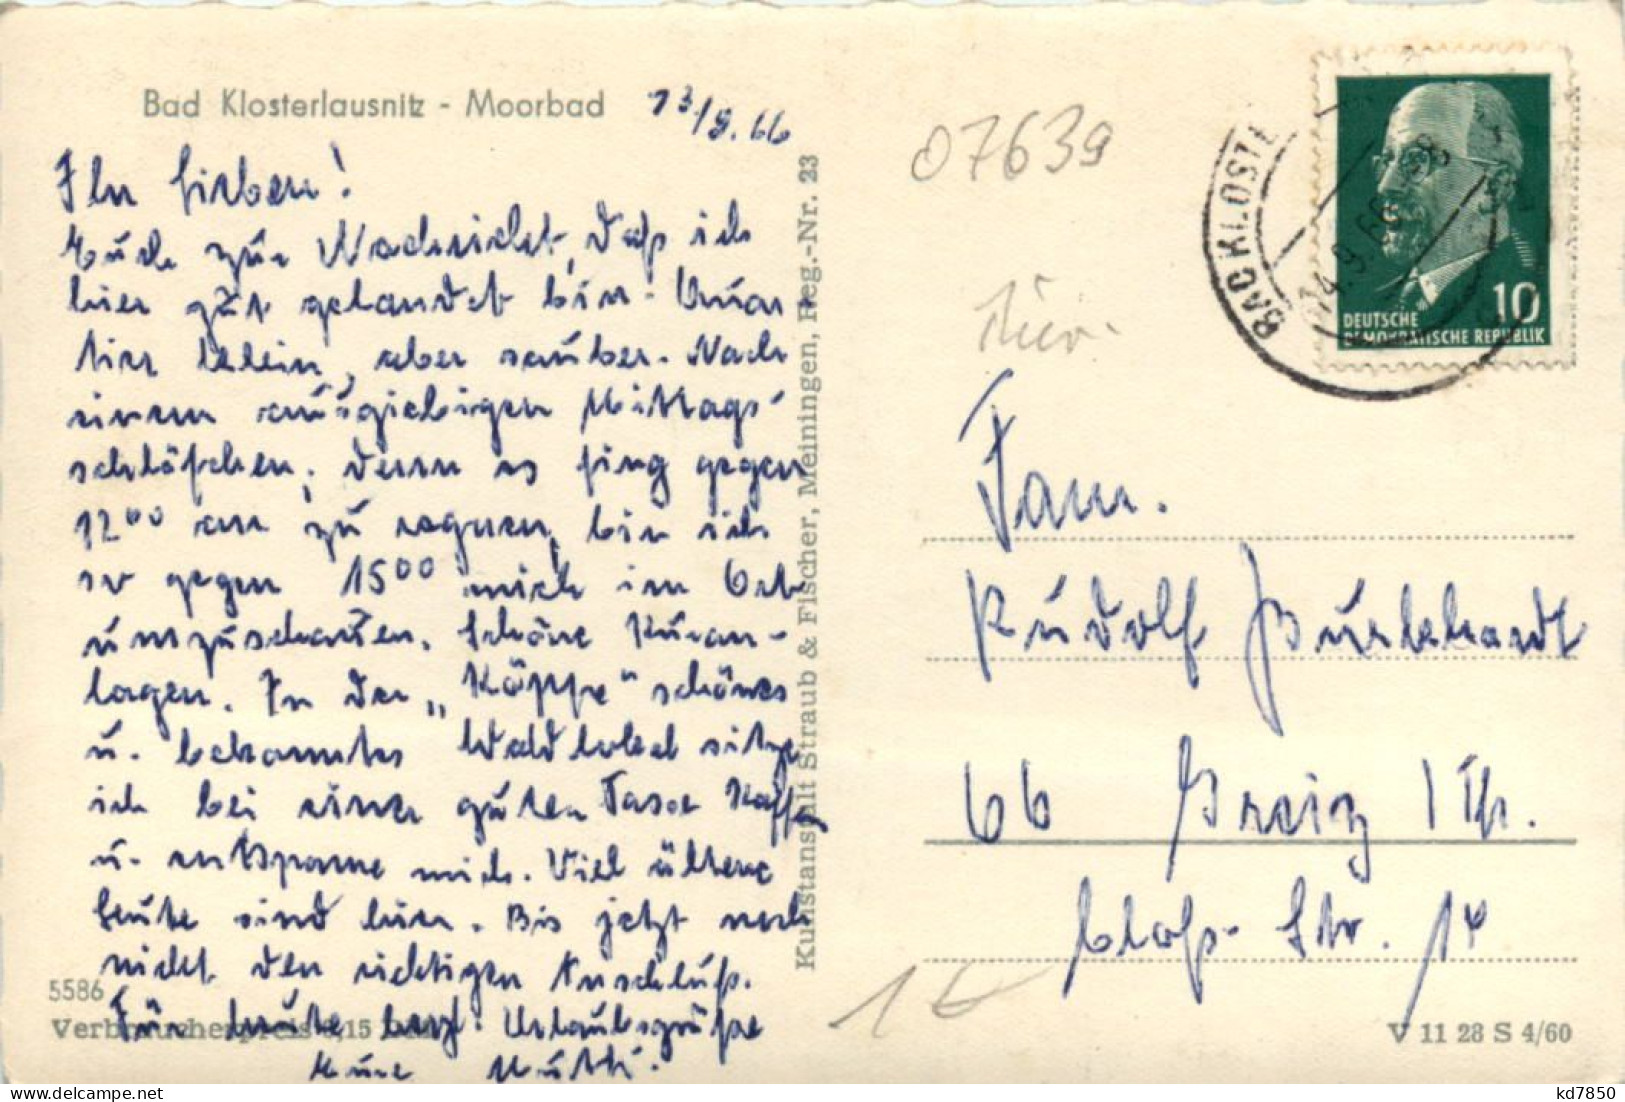 Bad Klosterlausnitz - Moorbad
13/9.66
Ihr Lieben!
Euch zur Nachricht, daß ich
hier gut gelandet bin. Quar
tier klein, aber sauber. Nach
einem ausgiebigen Mittags-
schläfchen, denn es fing gegen
12⁰⁰ an zu regnen, bin ich
so gegen 15⁰⁰ mich im Ort
umzuschauen. Schöne Kuran-
lagen. In der „Köppe" schönes
u. bekanntes Waldlokal sitze
ich bei einer guten Tasse Kaffe
u. entspanne mich. Viel ältere
Leute sind hier. Bis jetzt noch
nicht den richtigen Anschluß.
Für heute herzl. Urlaubsgrüße
Eure Mutti.
5586
Verbraucherpreis 0,15 DM
Kunstanstalt Straub & Fischer, Meiningen, Reg.-Nr. 23
07639
Thür.
BAD KLOSTE
14.9.66
10
DEUTSCHE
DEMOKRATISCHE REPUBLIK
Fam.
Rudolf Burkhardt
66 Greiz / Th.
Str. 14
1€
V 11 28 S 4/60
kd7850